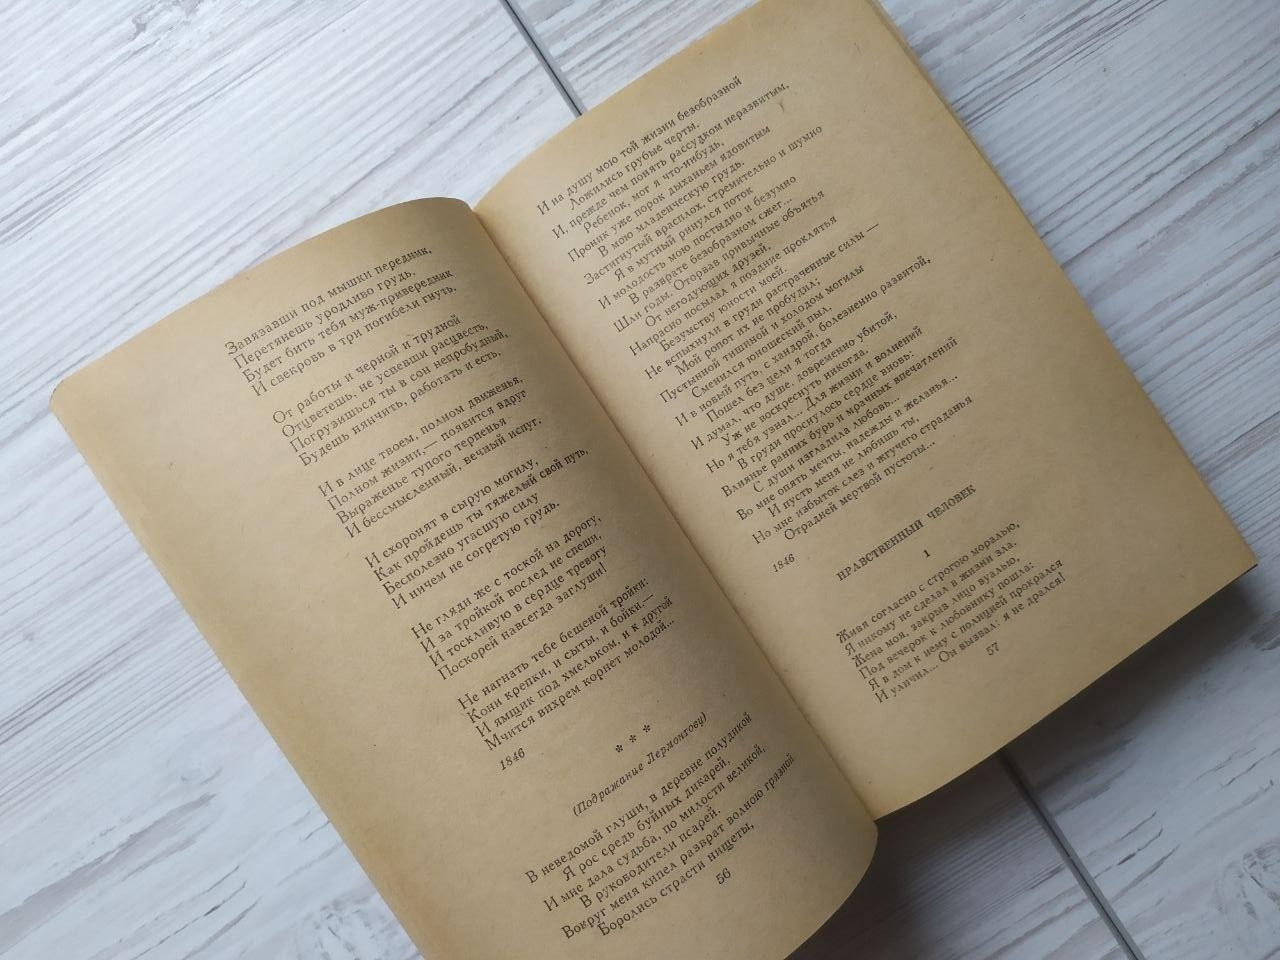 Завязавши под мышки передник,
Перетянешь уродливо грудь.
Будет бить тебя муж-привередник
И свекровь в три погибели гнуть.
От работы и черной и трудной
Отцветешь, не успевши расцвесть,
Погрузишься ты в сон непробудный,
Будешь нянчить, работать и есть.
И в лице твоем, полном движенья,
Полном жизни,— появится вдруг
Выраженье тупого терпенья
И бессмысленный, вечный испуг.
И схоронят в сырую могилу,
Как пройдешь ты тяжелый свой путь,
Бесполезно угасшую силу
И ничем не согретую грудь.
Не гляди же с тоской на дорогу,
И за тройкой вослед не спеши,
И тоскливую в сердце тревогу
Поскорей навсегда заглуши!
Не нагнать тебе бешеной тройки:
Кони крепки, и сыты, и бойки,—
И ямщик под хмельком, и к другой
Мчится вихрем корнет молодой...
1846
* * *
(Подражание Лермонтову)
В неведомой глуши, в деревне полудикой
Я рос средь буйных дикарей,
И мне дала судьба, по милости великой,
В руководители псарей.
Вокруг меня кипел разврат волною грязной
Боролись страсти нищеты,
56
И на душу мою той жизни безобразной
Ложились грубые черты.
И, прежде чем понять рассудком неразвитым,
Ребенок, мог я что-нибудь,
Проник уже порок дыханьем ядовитым
В мою младенческую грудь.
Застигнутый врасплох, стремительно и шумно
Я в мутный ринулся поток
И молодость мою постыдно и безумно
В разврате безобразном сжег...
Шли годы. Оторвав привычные объятья
От негодующих друзей,
Напрасно посылал я поздние проклятья
Безумству юности моей.
Не вспыхнули в груди растраченные силы —
Мой ропот их не пробудил;
Пустынной тишиной и холодом могилы
Сменился юношеский пыл.
И в новый путь, с хандрой, болезненно развитой,
Пошел без цели я тогда
И думал, что душе, довременно убитой,
Уж не воскреснуть никогда.
Но я тебя узнал... Для жизни и волнений
В груди проснулось сердце вновь:
Влиянье ранних бурь и мрачных впечатлений
С души изгладила любовь...
Во мне опять мечты, надежды и желанья...
И пусть меня не любишь ты,
Но мне избыток слез и жгучего страданья
Отрадней мертвой пустоты...
1846
НРАВСТВЕННЫЙ ЧЕЛОВЕК
1
Живя согласно с строгою моралью,
Я никому не сделал в жизни зла.
Жена моя, закрыв лицо вуалью,
Под вечерок к любовнику пошла;
Я в дом к нему с полицией прокрался
И уличил... Он вызвал: я не дрался!
57